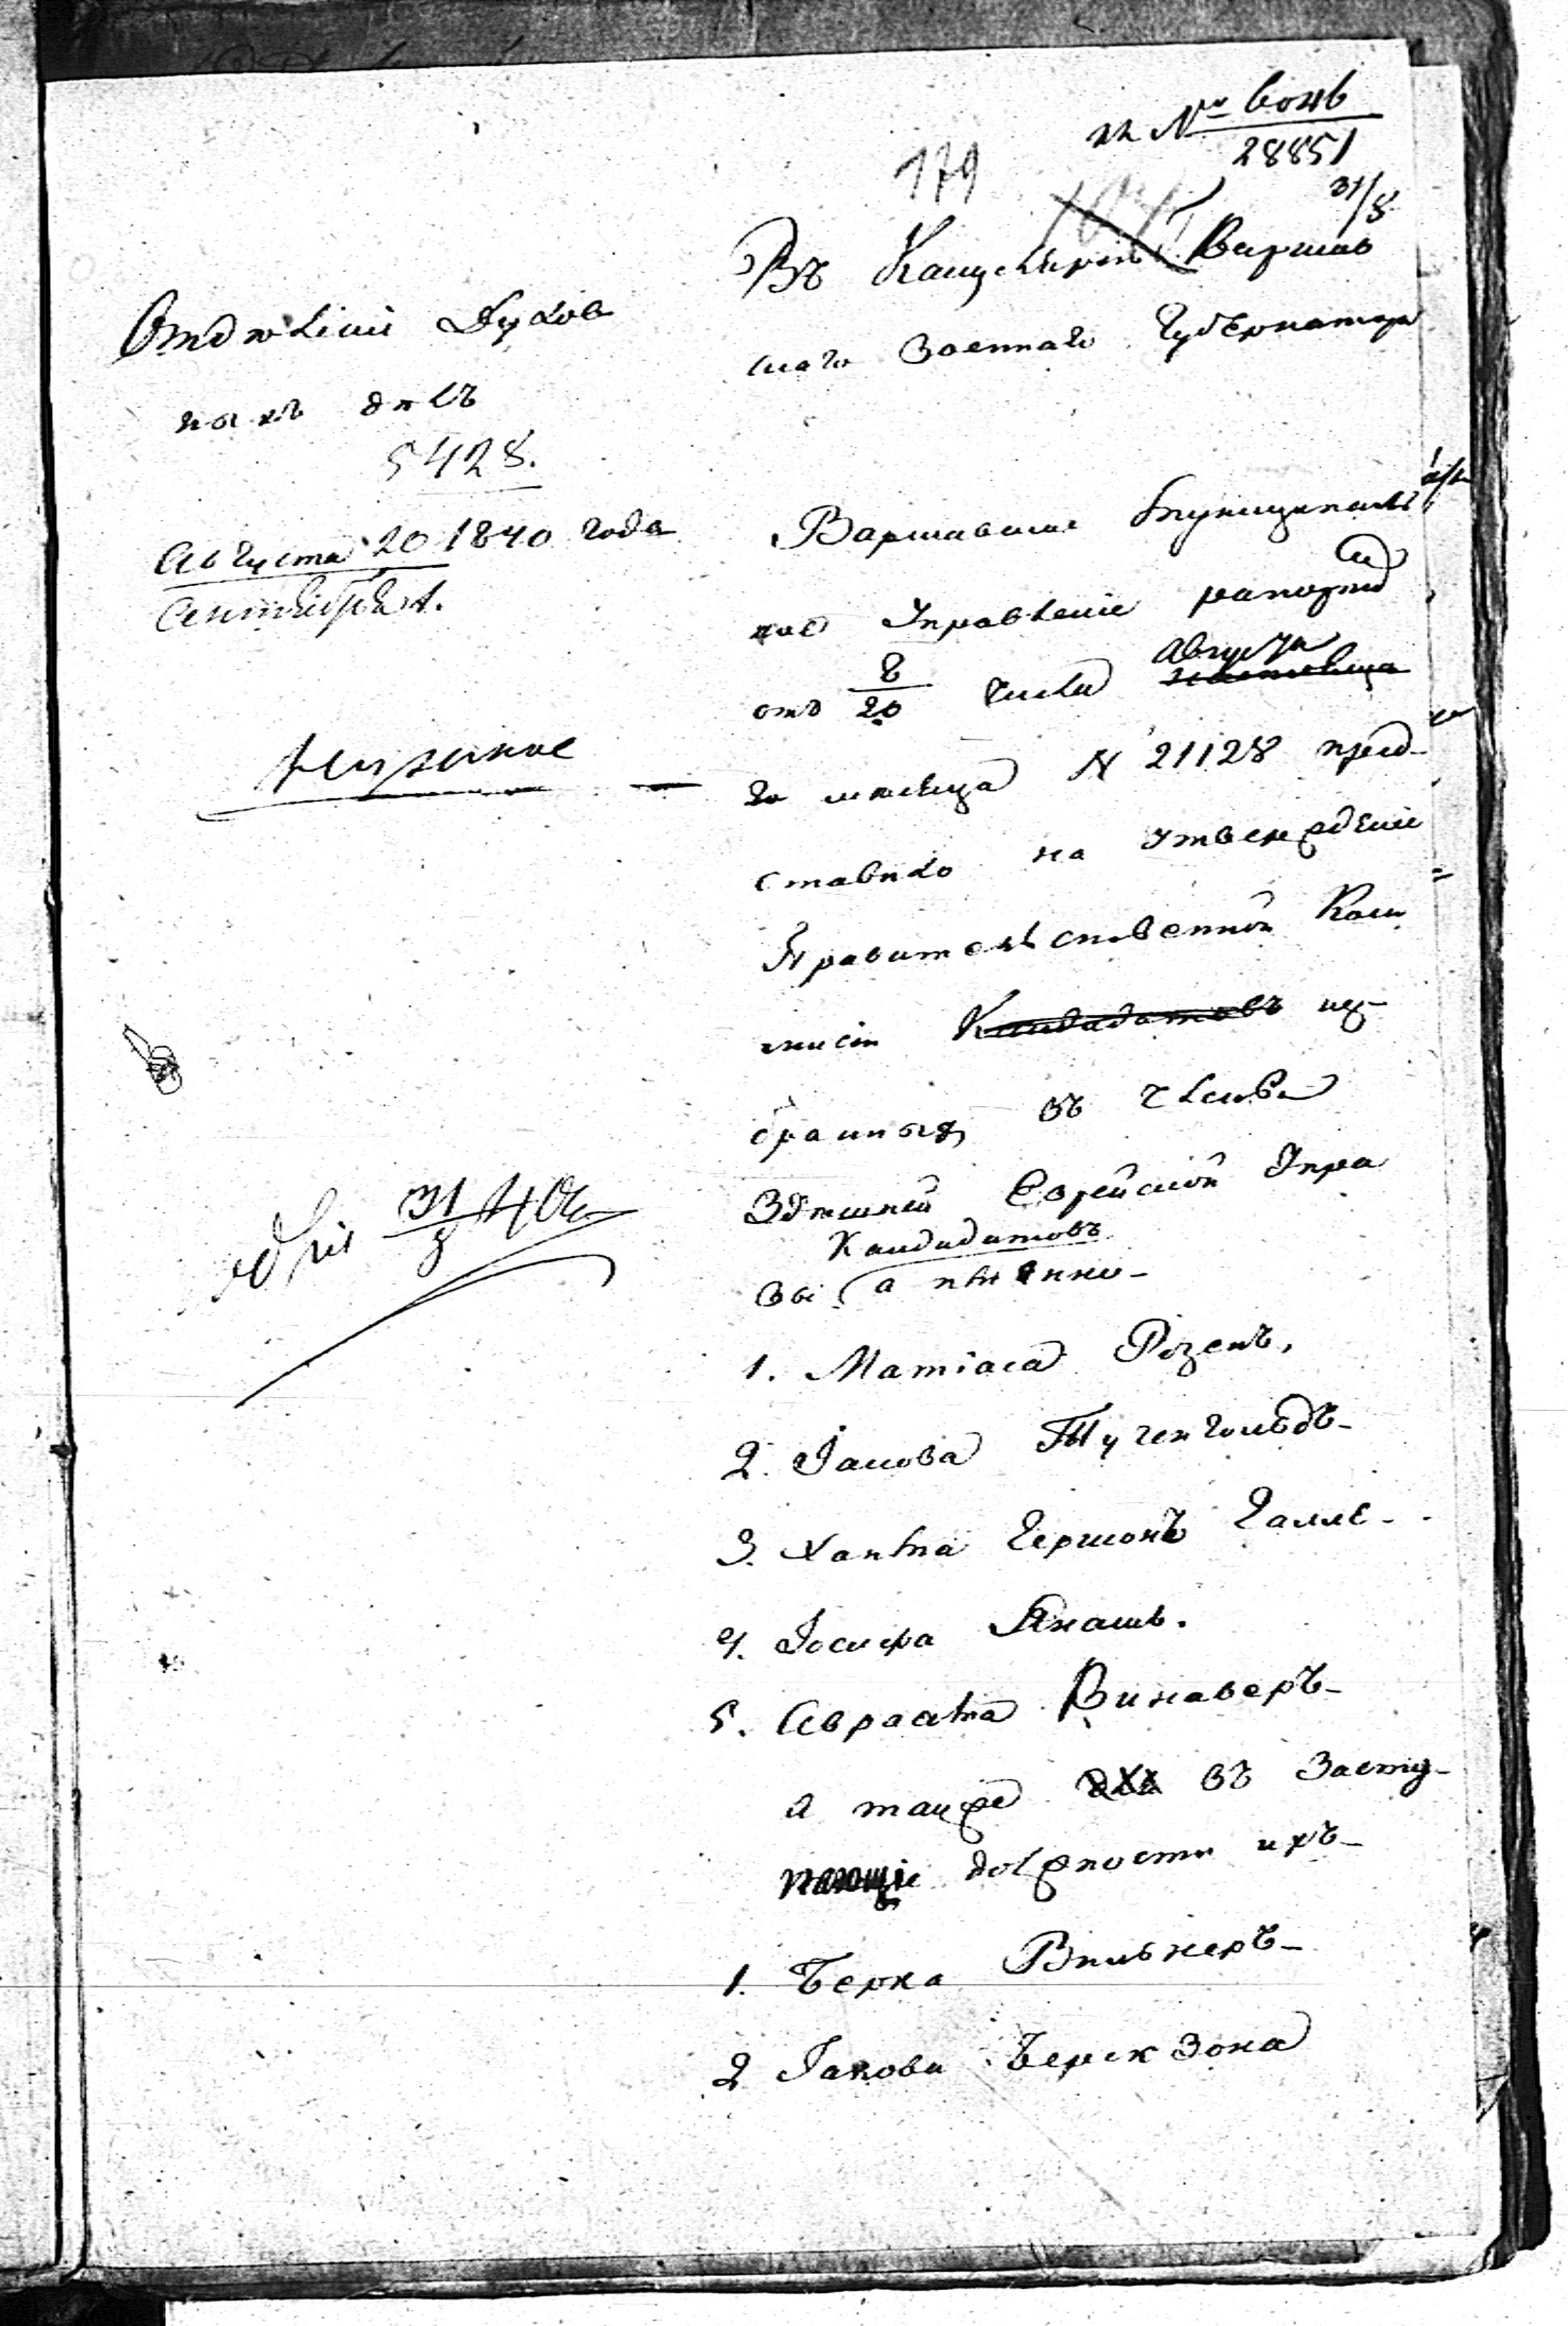 28851
31/8
179
Въ Канцелярію Варшав
скаго Военнаго Губернатора
Отдѣленіе Духов
ныхъ дѣлъ
5428.
Августа 20 1840 года
Сентября 1.
Варшавское Муниципаль
ное Управленіе рапортомъ
отъ 8/20 числа Августа
го мѣсяца N 21128 пред-
ставило на утвержденіе
Правительственной Ком
мисіи Кандидатовъ из-
бранныхъ въ члены
Здѣшней Еврейской Упра
Кандидатовъ
вы, а именно-
31/8 40
1. Матіаса Розенъ,
2. Іакова Тугенгольдъ-
3. Хаима Гершонъ Галле-
4. Іосифа Янашъ.
5. Авраама Винаверъ-
а также въ засту-
пающіе должности ихъ-
1. Берка Вильнеръ-
2 Іакова Берекзона